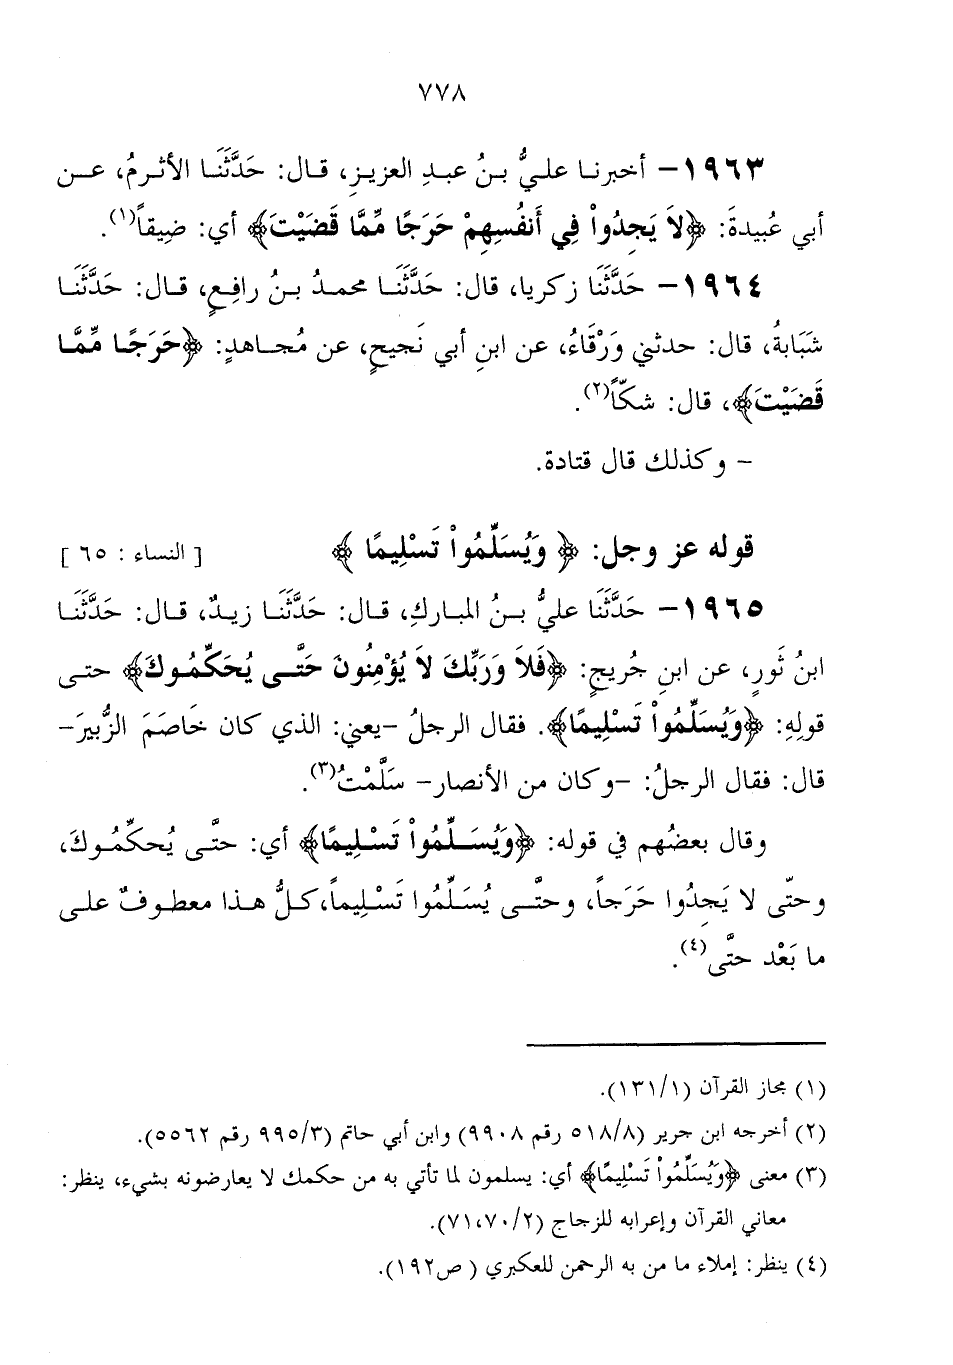 ٧٧٨
١٩٦٣- أخبرنا عليُّ بنُ عبدِ العزيزِ، قال: حَدَّثَنَا الأثرمُ، عن
أبي عُبيدةَ: ﴿لاَ يَجِدُواْ فِي أَنفُسِهِمْ حَرَجًا مِّمَّا قَضَيْتَ﴾ أي: ضِيقاً(١).
١٩٦٤- حَدَّثَنَا زكريا، قال: حَدَّثَنَا محمدُ بنُ رافِعٍ، قال: حَدَّثَنَا
شَبَابةُ، قال: حدثني وَرْقَاءُ، عن ابنِ أبي نَجيحٍ، عن مُجاهدٍ: ﴿حَرَجًا مِّمَّا
قَضَيْتَ﴾، قال: شكّاً(٢).
- وكذلك قال قتادة.
قوله عز وجل: ﴿ وَيُسَلِّمُواْ تَسْلِيمًا ﴾ [ النساء : ٦٥ ]
١٩٦٥- حَدَّثَنَا عليُّ بنُ المباركِ، قال: حَدَّثَنَا زيدٌ، قال: حَدَّثَنَا
ابنُ ثَورٍ، عن ابنِ جُريجٍ: ﴿فَلاَ وَرَبِّكَ لاَ يُؤْمِنُونَ حَتَّى يُحَكِّمُوكَ﴾ حتى
قولِهِ: ﴿وَيُسَلِّمُواْ تَسْلِيمًا﴾. فقال الرجلُ -يعني: الذي كان خَاصَمَ الزُّبيرَ-
قال: فقال الرجلُ: -وكان من الأنصار- سَلَّمْتُ(٣).
وقال بعضُهم في قوله: ﴿وَيُسَلِّمُواْ تَسْلِيمًا﴾ أي: حتَّى يُحكِّمُوكَ،
وحتّى لا يَجِدُوا حَرَجاً، وحتَّى يُسَلِّمُوا تَسْلِيماً،كلُّ هذا معطوفٌ على
ما بَعْد حتَّى(٤).
(١) مجاز القرآن (١٣١/١).
(٢) أخرجه ابن جرير (٥١٨/٨ رقم ٩٩٠٨) وابن أبي حاتم (٩٩٥/٣ رقم ٥٥٦٢).
(٣) معنى ﴿وَيُسَلِّمُواْ تَسْلِيمًا﴾ أي: يسلمون لما تأتي به من حكمك لا يعارضونه بشيء، ينظر:
معاني القرآن وإعرابه للزجاج (٧١،٧٠/٢).
(٤) ينظر: إملاء ما من به الرحمن للعكبري ( ص١٩٢).